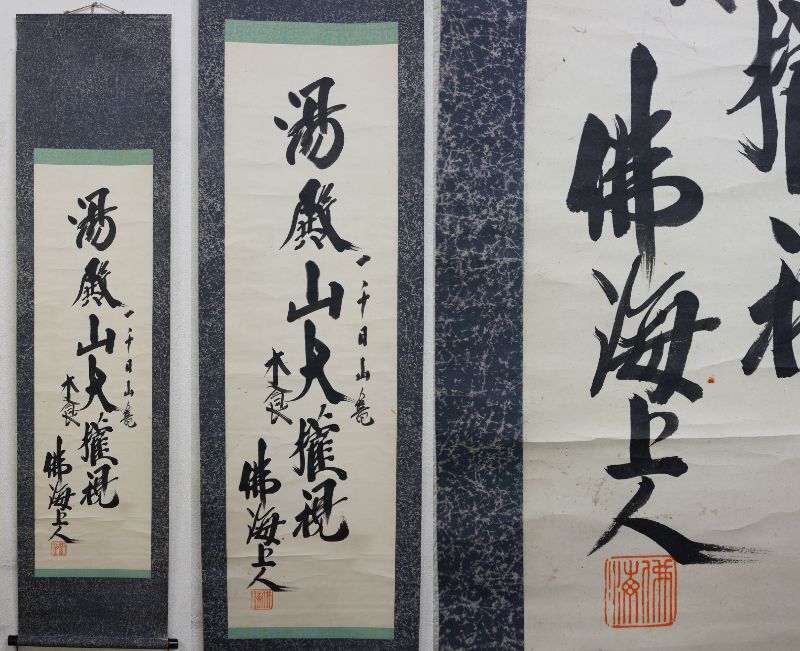 一千日山籠
湯殿山大權現
木食
佛海上人
佛海
一千日山籠
湯殿山大權現
木食
佛海上人
佛海
佛海上人
佛海